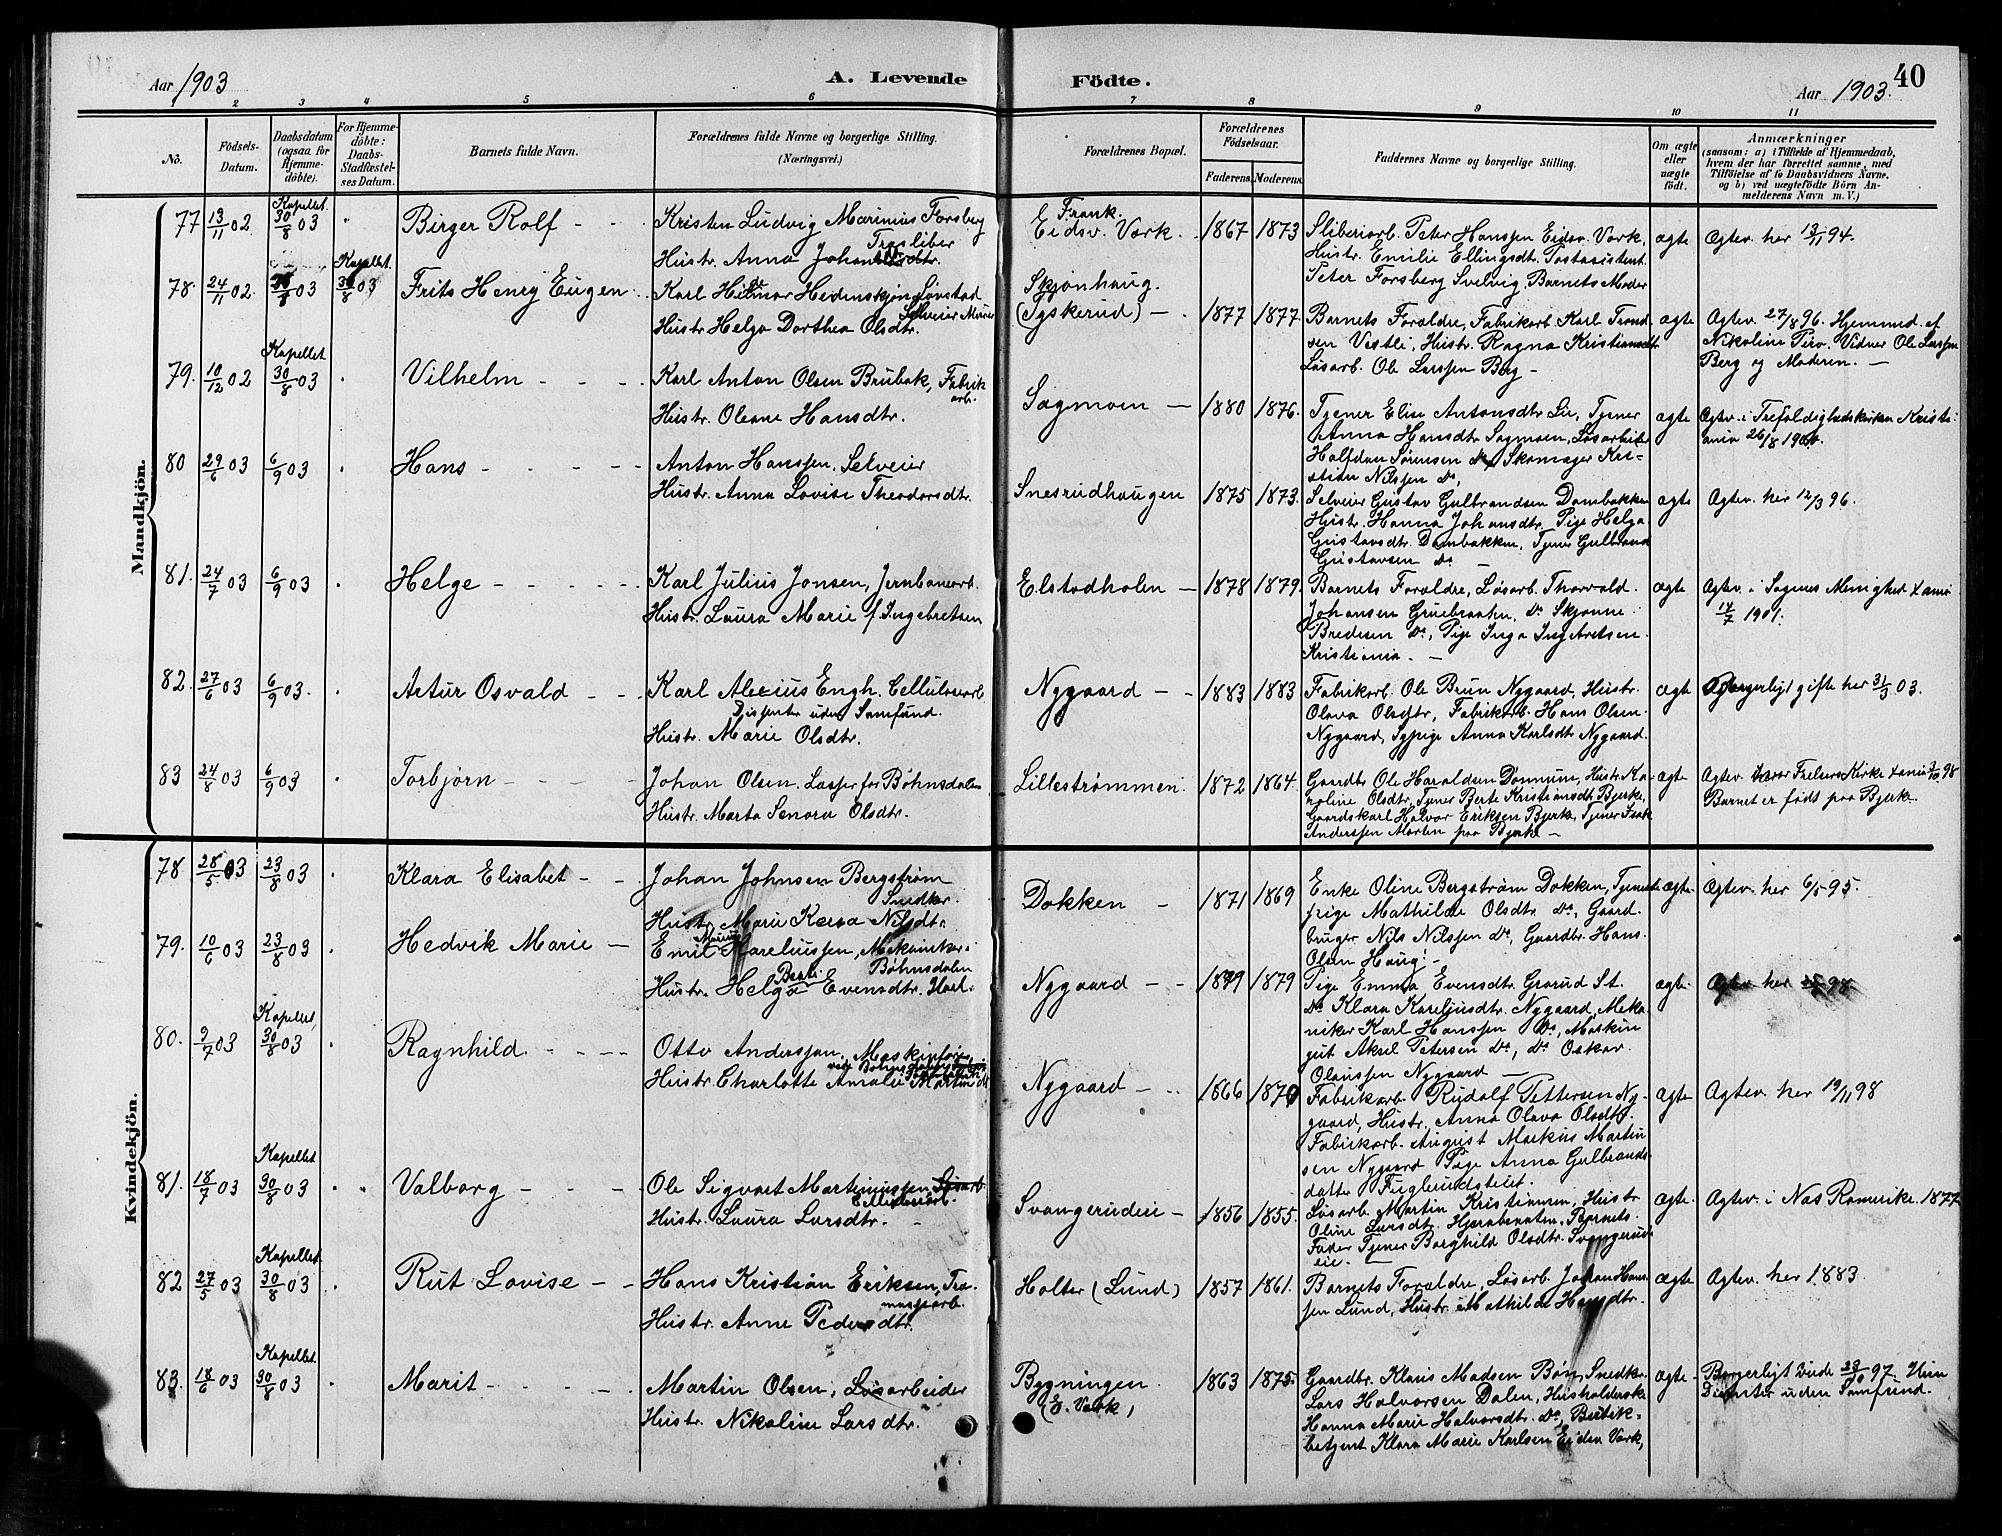 Aar 1903
A. Levende
Födte.
Aar 1903.
40
1 2 3 4 5 6 7 8 9 10 11
No.
Födsels-
Datum.
Daabsdatum
(ogsaa for
Hjemme-
döbte).
For Hjemme-
döbte:
Daabs-
Stadfæstel-
ses Datum.
Barnets fulde Navn.
Forældrenes fulde Navne og borgerlige Stilling.
(Næringsvei.)
Forældrenes Bopæl.
Forældrenes
Födselsaar.
Faderens. Moderens.
Faddernes Navne og borgerlige Stilling.
Om ægte
eller
uægte
födt.
Anmærkninger
(saasom: a) i Tilfælde af Hjemmedaab,
hvem der har forrettet samme, med
Tilföielse af to Daabsvidners Navne.
og b) ved uægtefödte Börn An-
melderens Navn m.V.)
Mandkjön.
77 13/11 02 Kapellet 30/8 03 Birger Rolf
Kristen Ludvig Marinius Forsberg
Træsliber
Hustr. Anna
E Frank.
Eidsv. Værk. 1867 1873
Sliberiarb. Peter Hanssen Eidsv. Værk,
Hustr. Emilie Ellingsdtr. Postassistent
Peter Forsberg Svelvig, Barnets Moder
ægte Ægtev. her 13/11 94.
78. 24/11 02. 03 Kapellet 30/8 03 Frits Henry Eugen
Karl Hilmar Lovstad
Selveier Murer
Hustr. Helga Dorthea Olsdtr.
Skjønhaug.
(Tyskerud) 1877 1877.
Barnets Forældre, Fabrikarb. Karl Trond
sen Vestli, Hustr. Ragna Kristiansdtr
Løsarb. Ole Larssen Berg
ægte Ægtev. 27/8 96. Hjemmed. af
Nikoline Vidner Ole Larssen
Berg og Moderen.
79. 10/12 02 Kapellet 30/8 03 Vilhelm
Karl Anton Olsen Brubak, Fabrik
arb.
Hustr. Oleane Hansdtr.
Sagmoen 1880 1876.
Tjener Elise Antonsdtr Lie, Tjener
Anna Hansdtr Sagmoen, Løsarbeider
Halfdan Sørensen do, Skomager Kri-
stian Nilssen do,
ægte Ægtev. i Trefoldighedskirken Kristi
ania 26/8 1900.
80 29/6 03 6/9 03 Hans
Anton Hanssen, Selveier
Hustr. Anna Lovise Theodorsdtr.
Snesrudhaugen 1875 1873.
Selveier Gustav Gulbrandsen Dambakken
Hustr. Hanna Johansdtr. Pige Helga
Gustavsdtr. Dambakken, Tjener Gulbrand
Gustavsen do
ægte Ægtev. her 12/3 96.
81. 24/7 03 6/9 03 Helge
Karl Julius Jonsen, Jernbanearb.
Hustr. Laura Marie f. Ingebretsen
Elstadholen 1878 1879.
Barnets Forældre, Løsarb. Thorvald
Johansen Gruebraaten, do Skjønne
Bredesen do, Pige Inga Ingvretsen
Kristiania.
ægte Ægtev. i Sagenes Menighed Xania
14/7 1901.
82. 27/6 03 6/9 03. Artur Osvald
Karl Alexius Engh. Cellulosearb
Dissenter uden Samfund.
Hustr. Marie Olsdtr.
Nygaard 1883 1883
Fabrikarb. Ole Brun Nygaard, Hustr.
Olava Olsdtr, Fabrikarb. Hans Olsen
Nygaard, Sypige Anna Karlsdtr Nygaard.
ægte Borgerligt gifte her 31/3 03.
83 24/8 03 6/9 03 Torbjørn
Johan Olsen, Lasser for Bøhnsdalen
Hustr. Marta Senora Olsdtr.
Lillestrømmen. 1872 1864.
Gaardbr. Ole Haraldsen Dønnum, Hustr. Ka-
roline Olsdtr, Tjener Berte Kristiansdtr Bjerke,
Gaardskarl Halvor Eriksen Bjerke, Tjener Isak
Anderssen Morten paa Bjerke
ægte Ægtev. Vor Frelsers Kirke Xania 98
Barnet er født paa Bjerke
Kvindekjön.
78 28/5 03 23/8 03 Klara Elisabet
Johan Johnsen Bergstrøm
Snedker.
Hustr. Marie Nilsdtr.
Dokken 1871 1869
Enke Oline Bergstrøm Dokken, Tjeneste
pige Mathilde Olsdtr. do, Gaard
bruger Nils Nilssen do, Gaardbr. Hans
Olsen Haug.
ægte Ægtev. her 6/5 95.
79. 10/6 03 23/8 03 Hedvik Marie
Emil Kareliussen, Mekaniker i
Bøhnsdalen
Hustr. Helga Evensdtr.
Nygaard 1879
Pige Emma Evensdtr. Grorud St.
do Klara Kareliusdtr. Nygaard, Meka
niker Karl Hanssen do, Maskin
gut Aksel Petersen do, do Oskar
Olaussen Nygaard
ægte Ægtev. her 98
80. 9/7 03 Kapellet, 30/8 03 Ragnhild.
Otto Anderssen. Maskinfører
ved Bøhnsdalens
Hustr. Charlotte Amalie Martinsdtr
Nygaard 1866
Fabrikarb. Rudolf Pettersen Ny-
gaard, Hustr. Anna Olava Olsdtr.
Fabrikarb. August Markus Martin
sen Nygaard Pige Anna Gulbrands
datter Fuglerudsteiet.
ægte Ægtev. her 19/11 98
81. 18/7 03 Kapellet 30/8 03 Valborg
Ole Sigvart Martinussen
Cellulosearb.
Hustr. Laura Larsdtr.
Svangerudeie 1856 1855.
Løsarb. Martin Kristiansen, Hustr
Oline Larsdtr. Barnets
Fader Tjener Borghild Olsdtr. Svangerud
eie.
ægte. Ægtev. i Næs Romerike. 1877
82 27/5 03 Kapellet 30/8 03 Rut Lovise
Hans Kristian Eriksen, Træ
massearb.
Hustr. Anne Pedersdtr.
Holter (Lund) 1857 1861.
Barnets Forældre, Løsarb. Johan Hans
sen Lund, Hustr. Mathilde Hansdtr.
ægte Ægtev. her 1883.
83. 18/6 03 Kapellet. 30/8 03 Marit
Martin Olsen, Løsarbeider
Hustr. Nikoline Larsdtr.
Bygningen
(E. Værk) 1863 1875
Gaardbr. Klaus Madsen Bøn, Snedker
Lars Halvorsen Dalen, Husholderske
Hanna Marie Halvorsdtr. do, Butik-
betjent Klara Marie Karlsen Eidsv. Værk,
ægte Borgerligt viede 97. Hun
Dissenter uden Samfund.